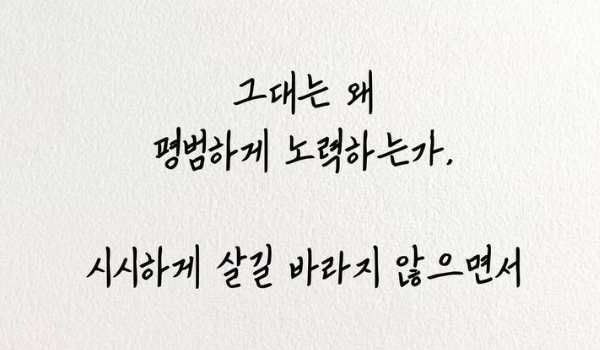 그대는 왜
평범하게 노력하는가.
시시하게 살길 바라지 않으면서